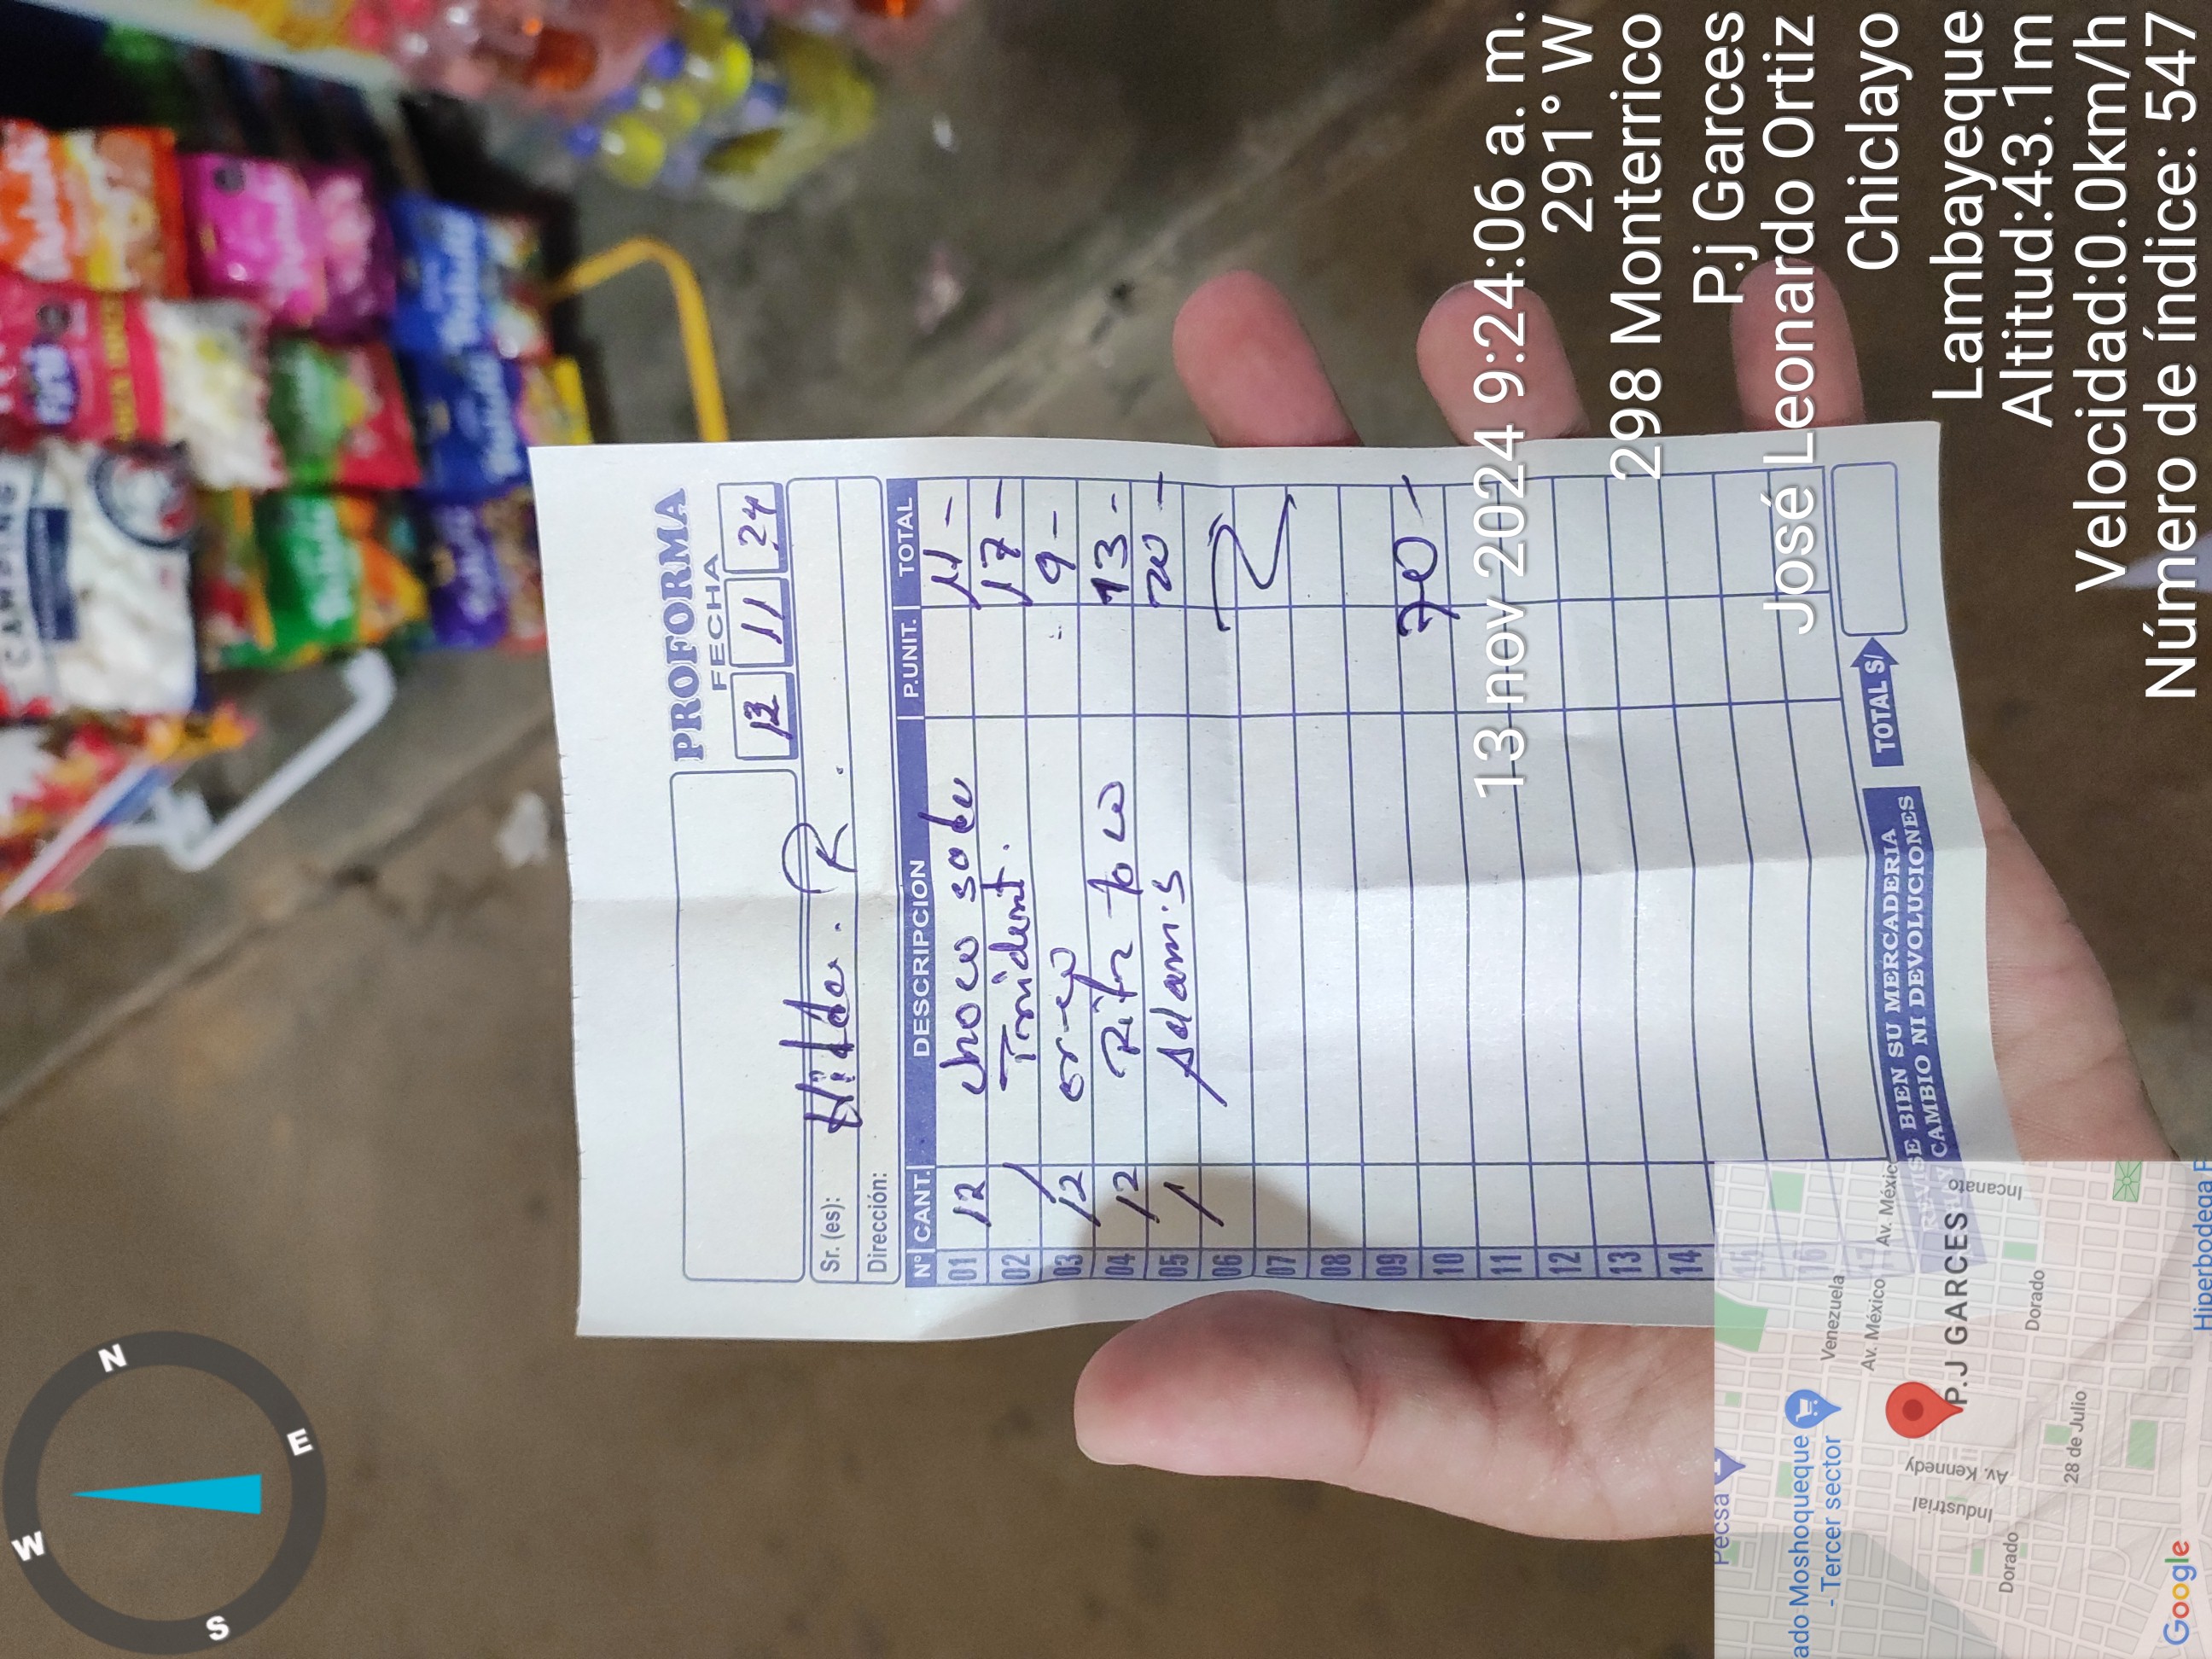 W
N
S
E
CAMPING
Fini
PROFORMA
FECHA
13 11 24
Sr. (es): Hilda. R.
Dirección:
N° CANT. DESCRIPCION P.UNIT. TOTAL
01 12 choco soda 11 -
02 1 Trident. 17 -
03 12 oreo 9 -
04 12 Ritz taco 13 -
05 1 Adam.s 20 -
06
07
08
09
10 70 -
11
12
13
14
15
16
17
REVISE BIEN SU MERCADERIA
HAY CAMBIO NI DEVOLUCIONES
TOTAL S/
13 nov 2024 9:24:06 a. m.
291° W
298 Monterrico
P.j Garces
José Leonardo Ortiz
Chiclayo
Lambayeque
Altitud:43.1m
Velocidad:0.0km/h
Número de índice: 547
Pecsa
ado Moshoqueque
- Tercer sector
Venezuela
Av. México
Av. Méxic
Industrial
Av. Kennedy
P.J GARCES
Incanato
Dorado
Dorado
28 de Julio
Google
Hiperbodega P